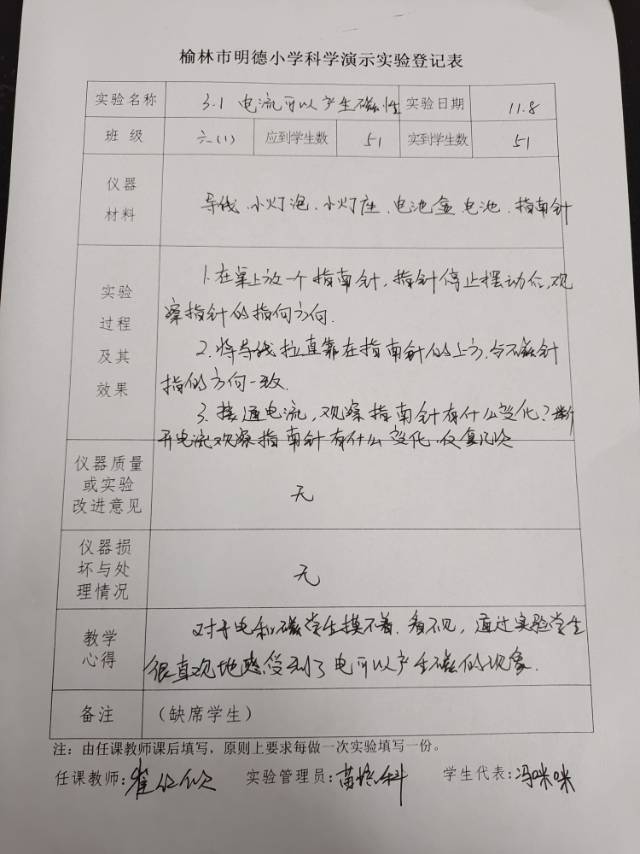 榆林市明德小学科学演示实验登记表
实验名称 3.1 电流可以产生磁性 实验日期 11.8
班 级 六(1) 应到学生数 51 实到学生数 51
仪器
材料
导线、小灯泡、小灯座、电池盒、电池、指南针
实验
过程
及其
效果
1.在桌上放一个指南针,指针停止摆动后,观
察指针的指向方向.
2.将导线拉直靠在指南针的上方,令与磁针
指的方向一致.
3.接通电流,观察指南针有什么变化?断
开电流观察指南针有什么变化,反复几次
仪器质量
或实验
改进意见
无
仪器损
坏与处
理情况
无
教学
心得
对于电和磁学生摸不着、看不见,通过实验学生
很直观地感受到了电可以产生磁的现象.
备注 (缺席学生)
注:由任课教师课后填写,原则上要求每做一次实验填写一份。
任课教师:崔 实验管理员:苗 科 学生代表:冯咪咪